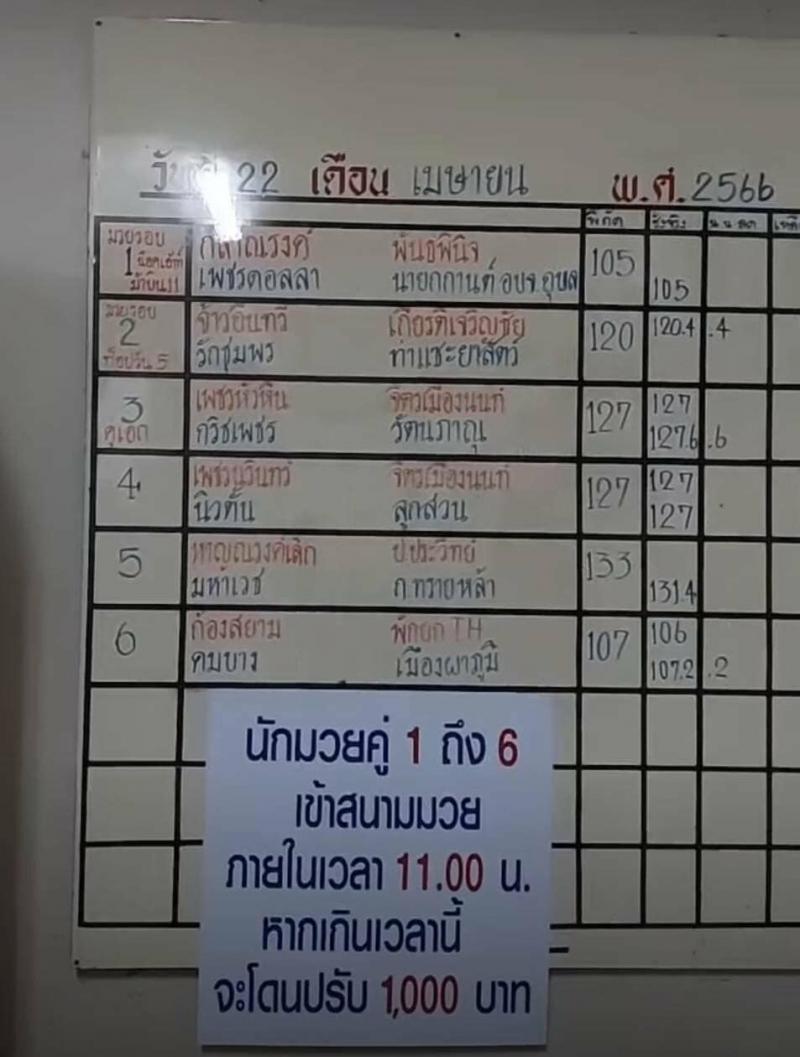 วันที่ 22 เดือน เมษายน พ.ศ. 2566
พิกัด ชั่งจริง น.น.ลด
มวยรอบ
1 น็อคเอ้าท์
ม้าบิน 11
พันธ์พินิจ 105
เพชรดอลลา นายกกานต์ อบจ.อุบล 105
มวยรอบ
2
ท็อปวัน 5
จ้าวอินทรี เกียรติเจริญชัย 120 120.4 .4
รักชุมพร ท่าแซะยาสัตว์
3
คู่เอก
เพชรหัวหิน จิตรเมืองนนท์ 127 127
กวิชเพชร รัตนภาณุ 127.6 .6
4 เพชรนรินทร์ จิตรเมืองนนท์ 127 127
นิวตั้น ลูกสวน 127
5 หาญณรงค์เล็ก ป.ประวิทย์ 133
มหาเวช ก.ทรายหล้า 131.4
6 ก้องสยาม พักยก TH 107 106
คมบาง เมืองผาภูมิ 107.2 .2
นักมวยคู่ 1 ถึง 6
เข้าสนามมวย
ภายในเวลา 11.00 น.
หากเกินเวลานี้
จะโดนปรับ 1,000 บาท